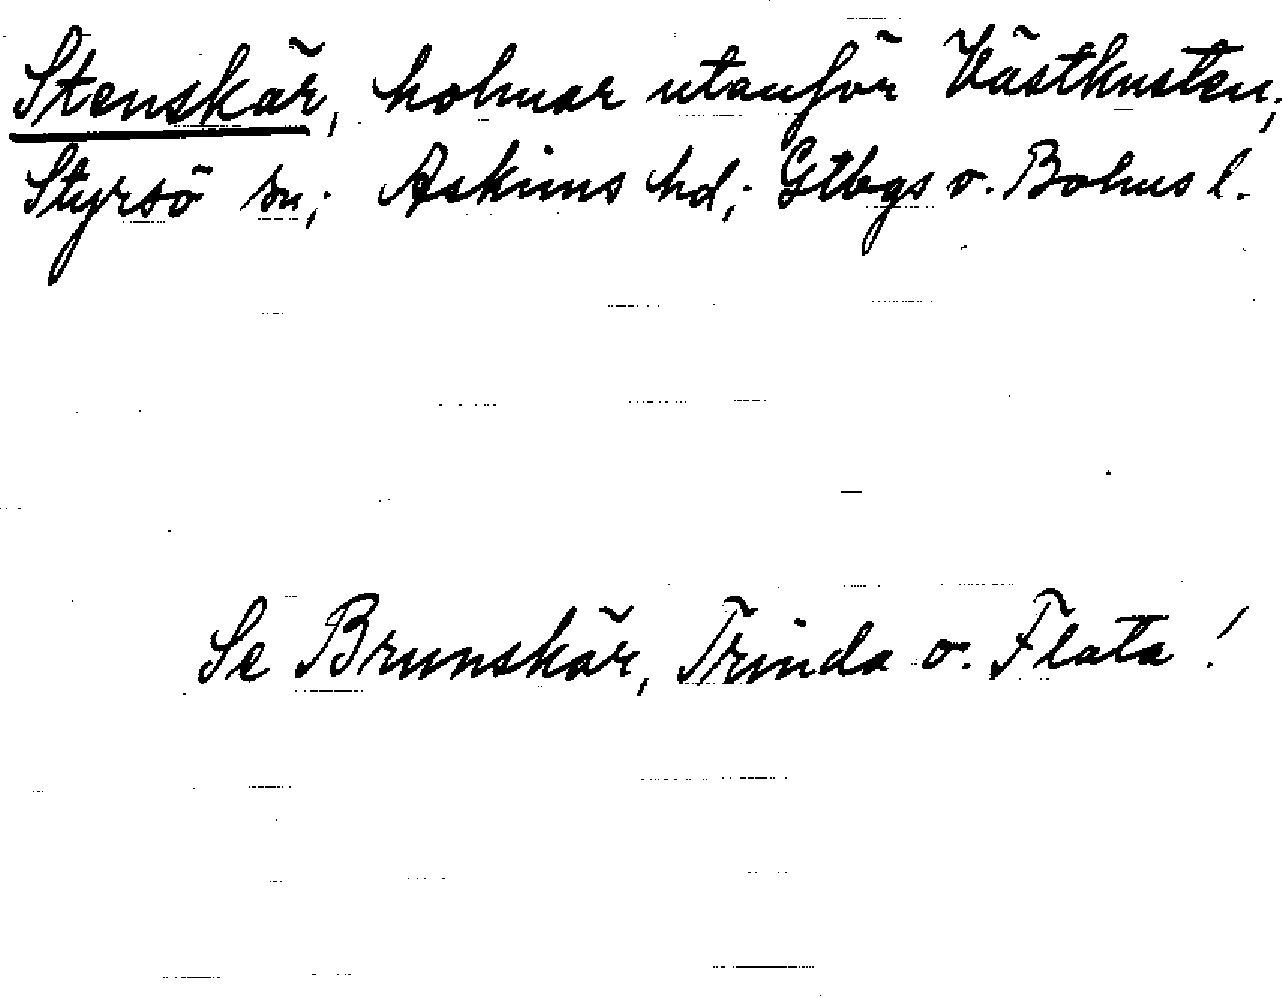 Stenskär, holmar utanför Västkusten;
Styrsö sn; Askims hd; Gtbgs o. Bohus l.
Se Brunskär, Trinda o. Flata!